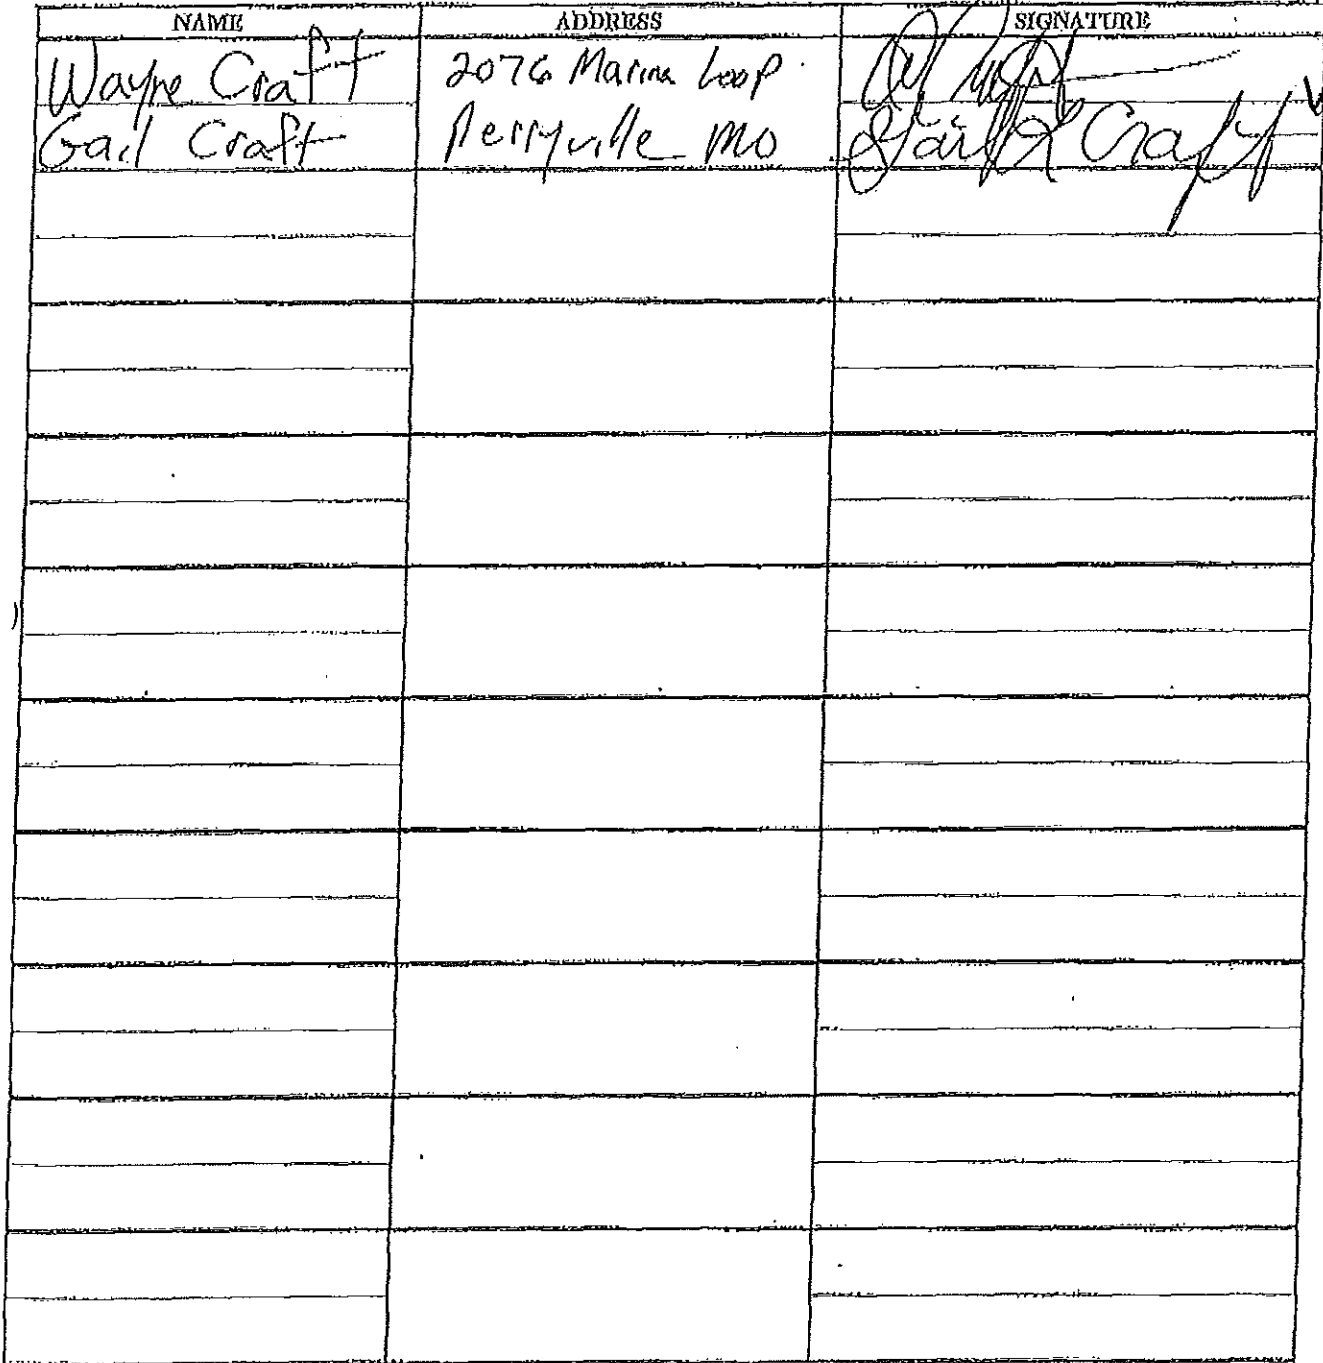 NAME ADDRESS SIGNATURE
Wayne Craft 2076 Marina Loop
Gail Craft Perryville MO Gail Craft